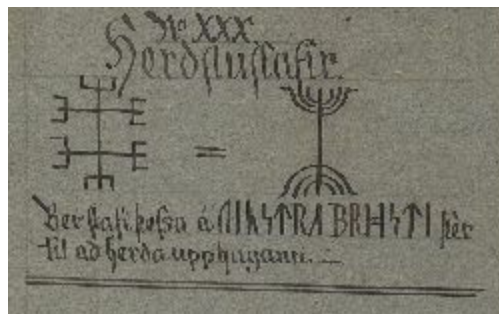 No XXX.
Herdslustafir.
=
Ber stafi þessa á ᚢᛁᚿᛋᛏᚱᛆ ᛒᚱᛁᚮᛋᛏᛁ þèr
til ad herda upp hugann.